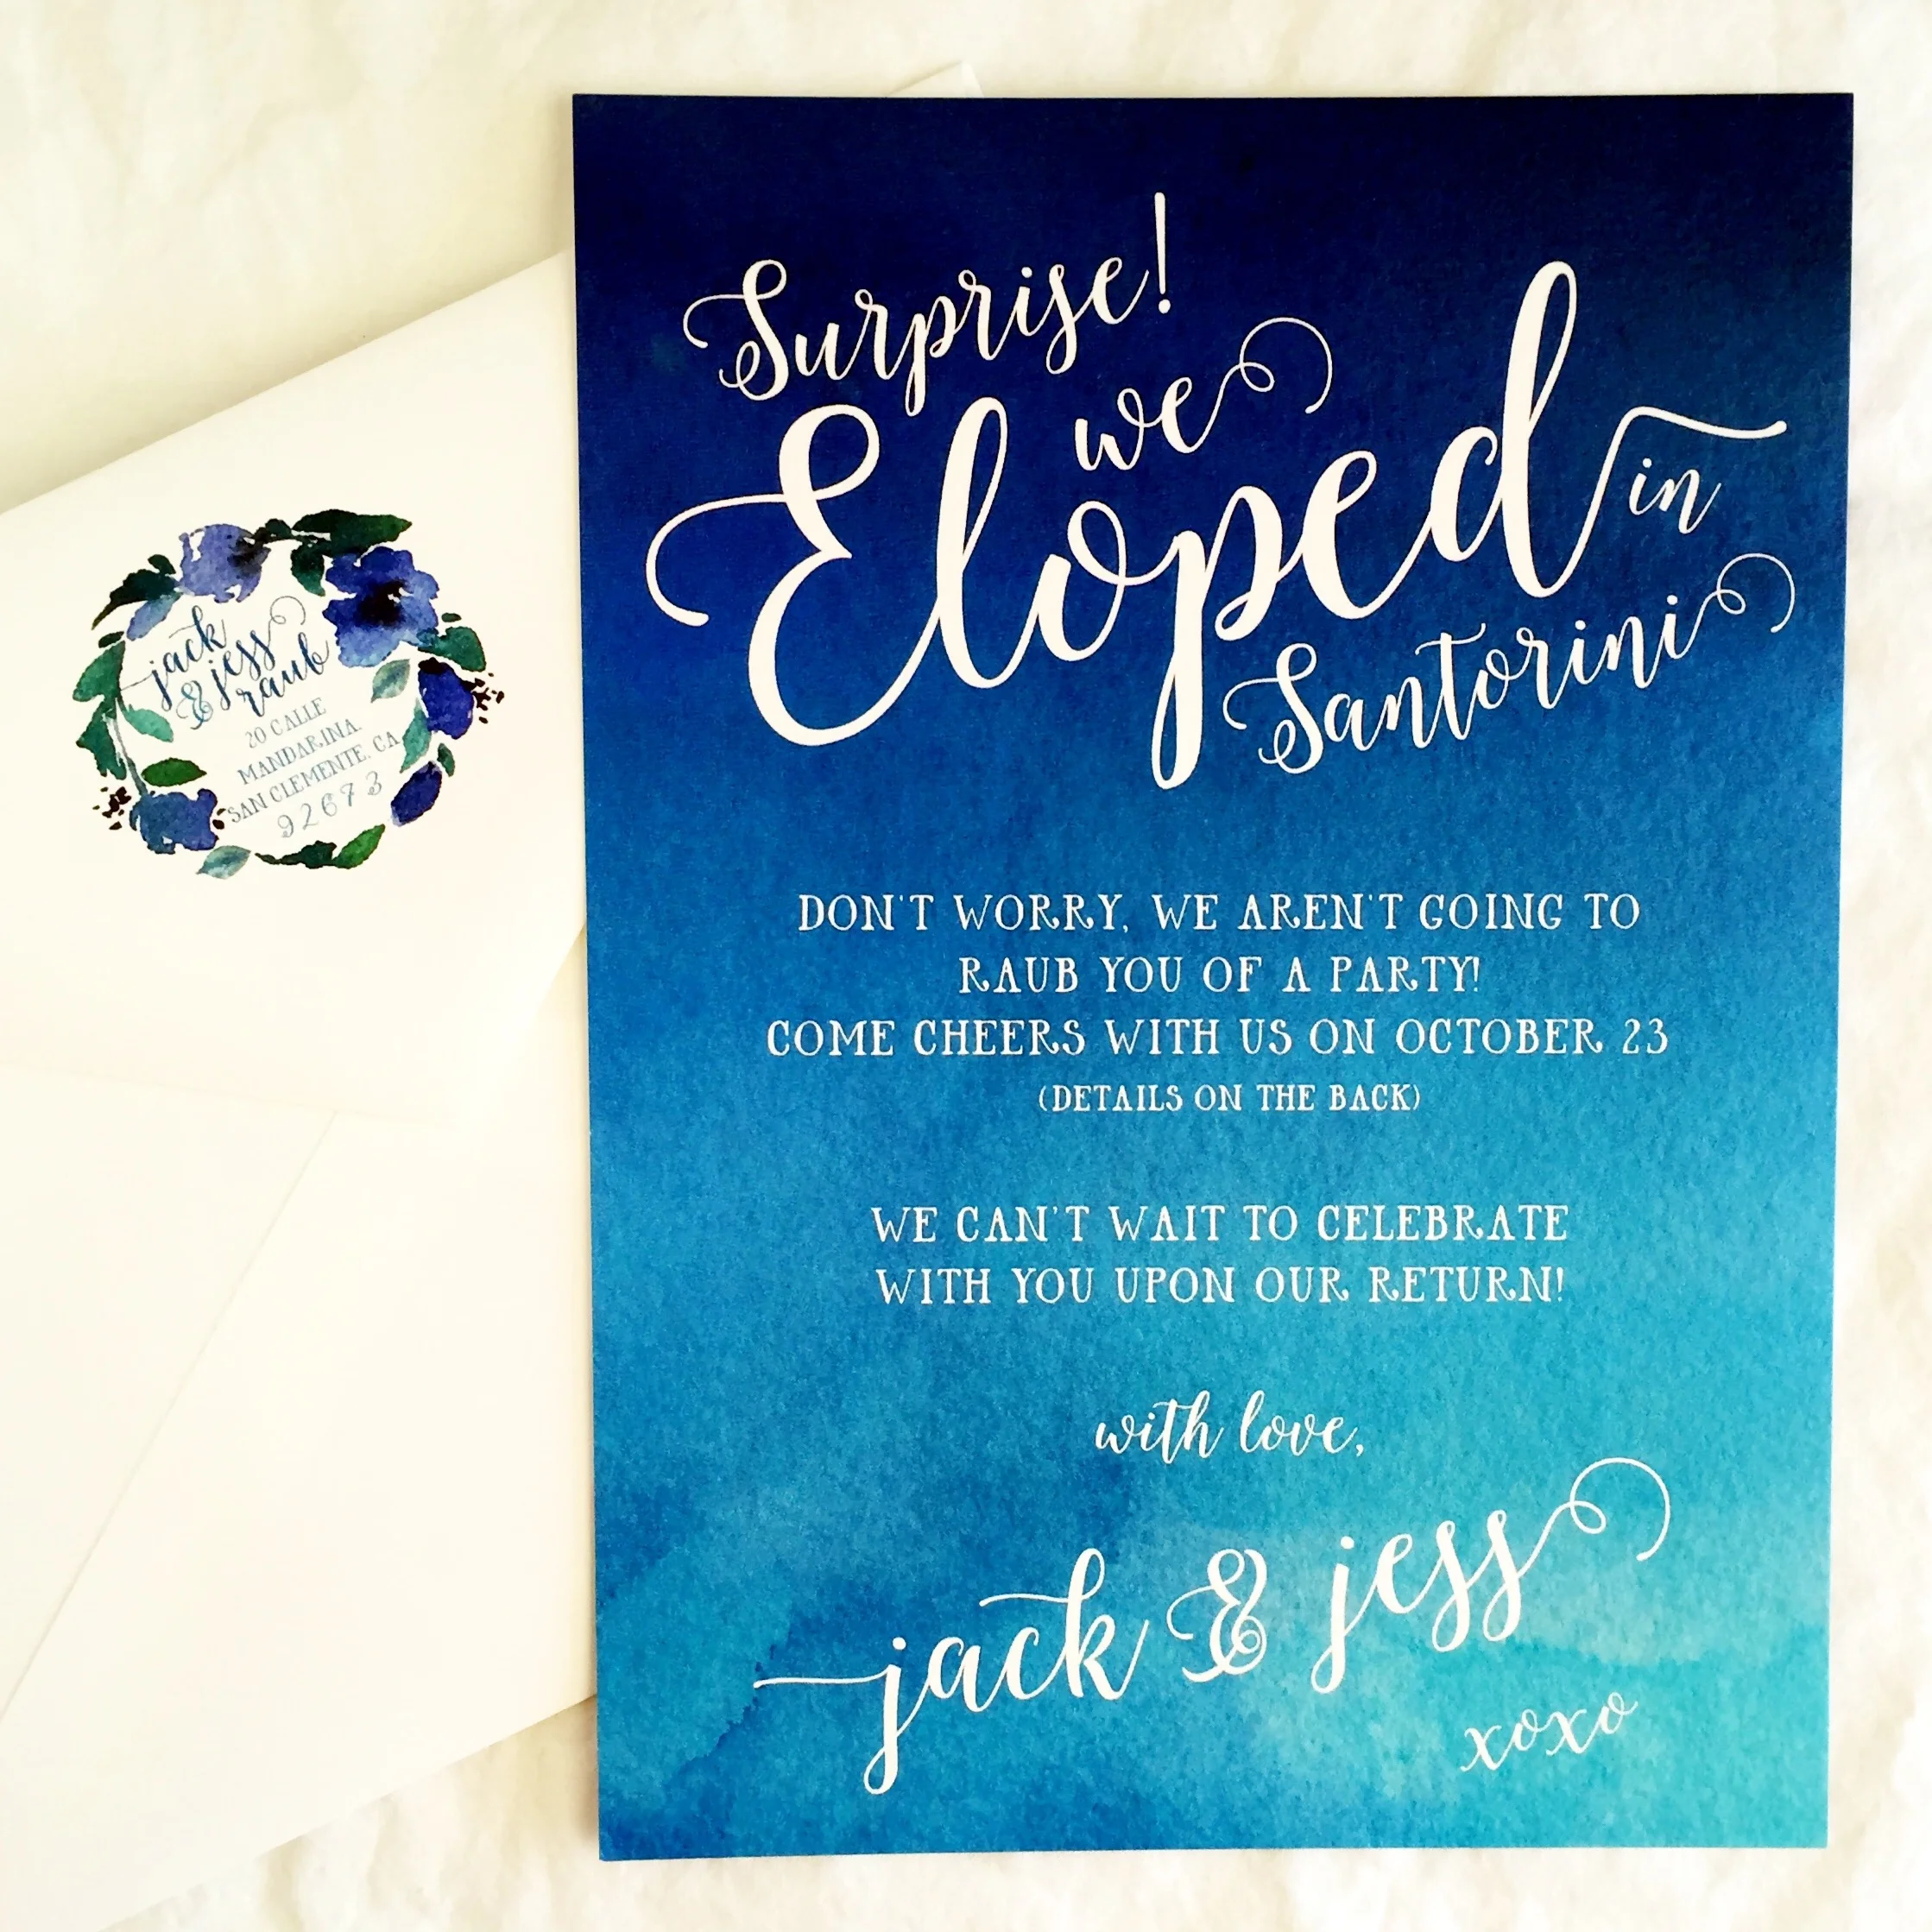 Surprise!
we
Eloped in
Santorini
DON'T WORRY, WE AREN'T GOING TO
RAUB YOU OF A PARTY!
COME CHEERS WITH US ON OCTOBER 23
(DETAILS ON THE BACK)
WE CAN'T WAIT TO CELEBRATE
WITH YOU UPON OUR RETURN!
with love,
jack & jess
xoxo
jack
& jess
raub
20 CALLE
MANDARINA
SAN CLEMENTE, CA
92673